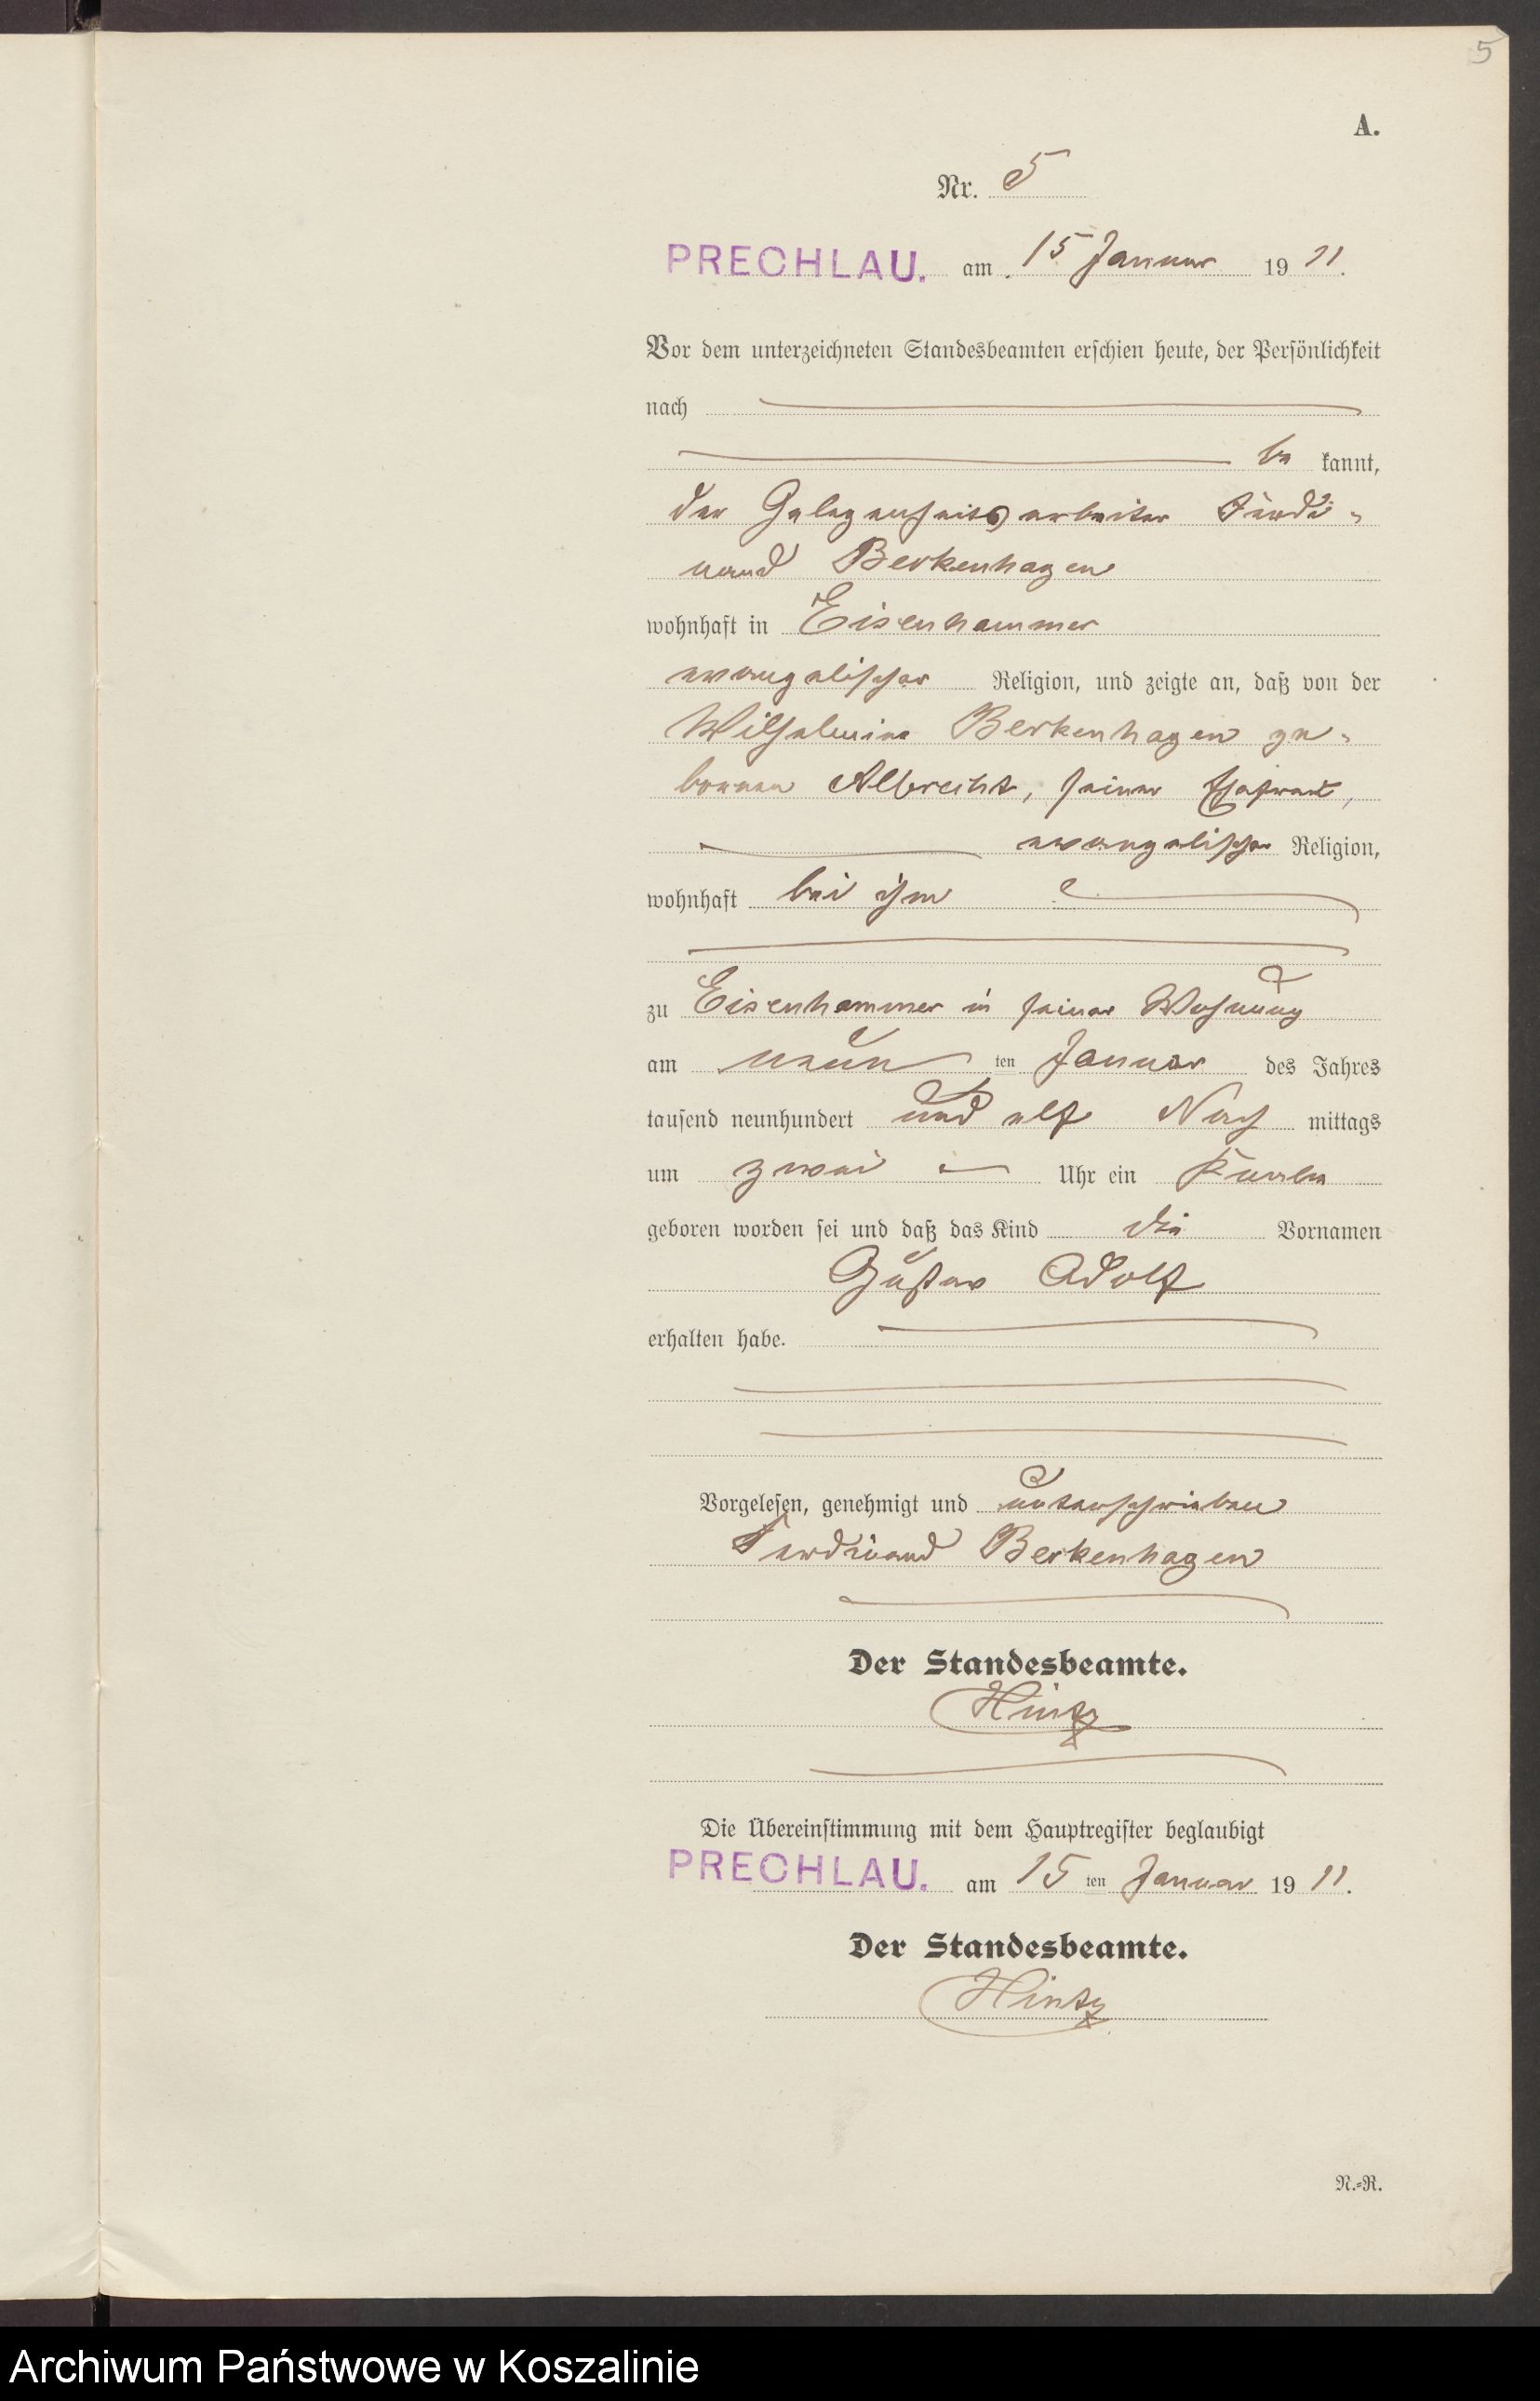 5
A.
Nr. 5
PRECHLAU. am 15 Januar 1911.
Vor dem unterzeichneten Standesbeamten erschien heute, der Persönlichkeit
nach
be kannt,
der Gelegenheitsarbeiter Ferdi-
nand Berkenhagen
wohnhaft in Eisenhammer
evangelischer Religion, und zeigte an, daß von der
Wilhelmine Berkenhagen ge-
borenen Albrecht, seiner Ehefrau,
evangelischer Religion,
wohnhaft bei ihm
zu Eisenhammer in seiner Wohnung
am neun ten Januar des Jahres
tausend neunhundert und elf Nach mittags
um zwei Uhr ein Knabe
geboren worden sei und daß das Kind die Vornamen
Gustav Adolf
erhalten habe.
Vorgelesen, genehmigt und unterschrieben
Ferdinand Berkenhagen
Der Standesbeamte.
Hintz
Die Übereinstimmung mit dem Hauptregister beglaubigt
PRECHLAU. am 15 ten Januar 1911.
Der Standesbeamte.
Hintz
N.=R.
Archiwum Państwowe w Koszalinie